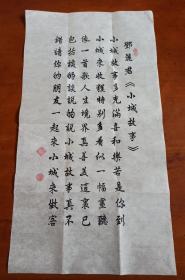 鄧麗君《小城故事》
小城故事多充滿喜和樂若是你到
小城來收穫特別多看似一幅畫聽
像一首歌人生境界真善美這裏已
包括談的談説的説小城故事真不
錯請你的朋友一起來小城來做客